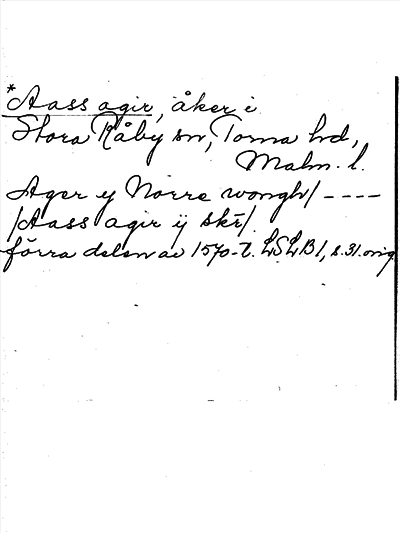 *Aass agir, åker i
Stora Råby sn, Torna hd,
Malm. l.
Ager y Norre wongh/ ----
/Aass agir ij skr/.
förra delen av 1570-t. LSLB1, s.31. orig